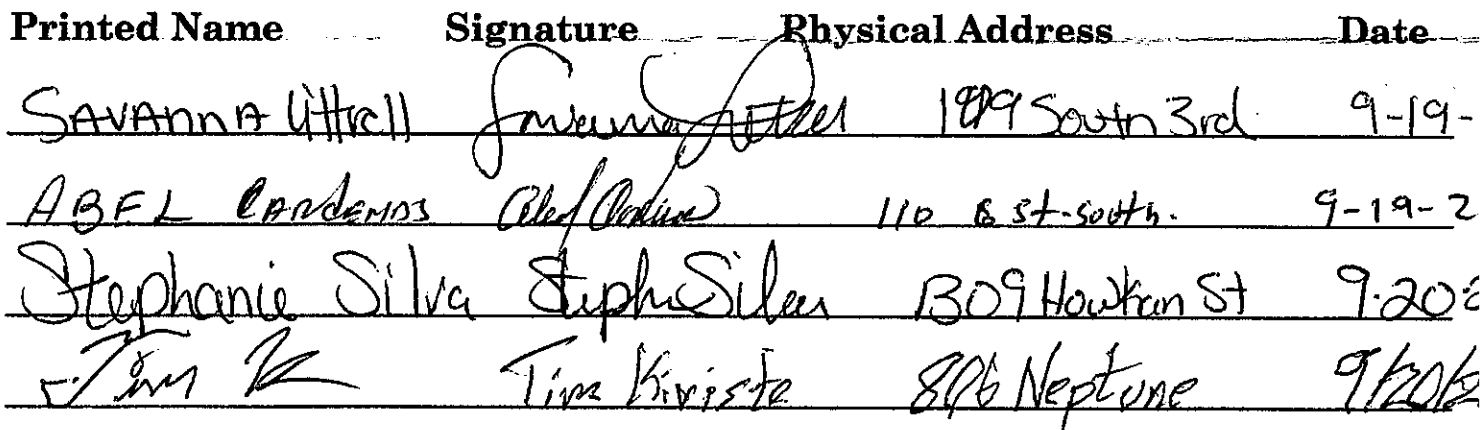 Printed Name Signature Physical Address Date
SAVAnnA Littrell 1819 South 3rd 9-19-
ABEL CARdENAS 110 B St-south. 9-19-2
Stephanie Silva Steph Silva 1309 Howkan St 9.20
Tim Tim Kiviste 806 Neptune 9/20/2